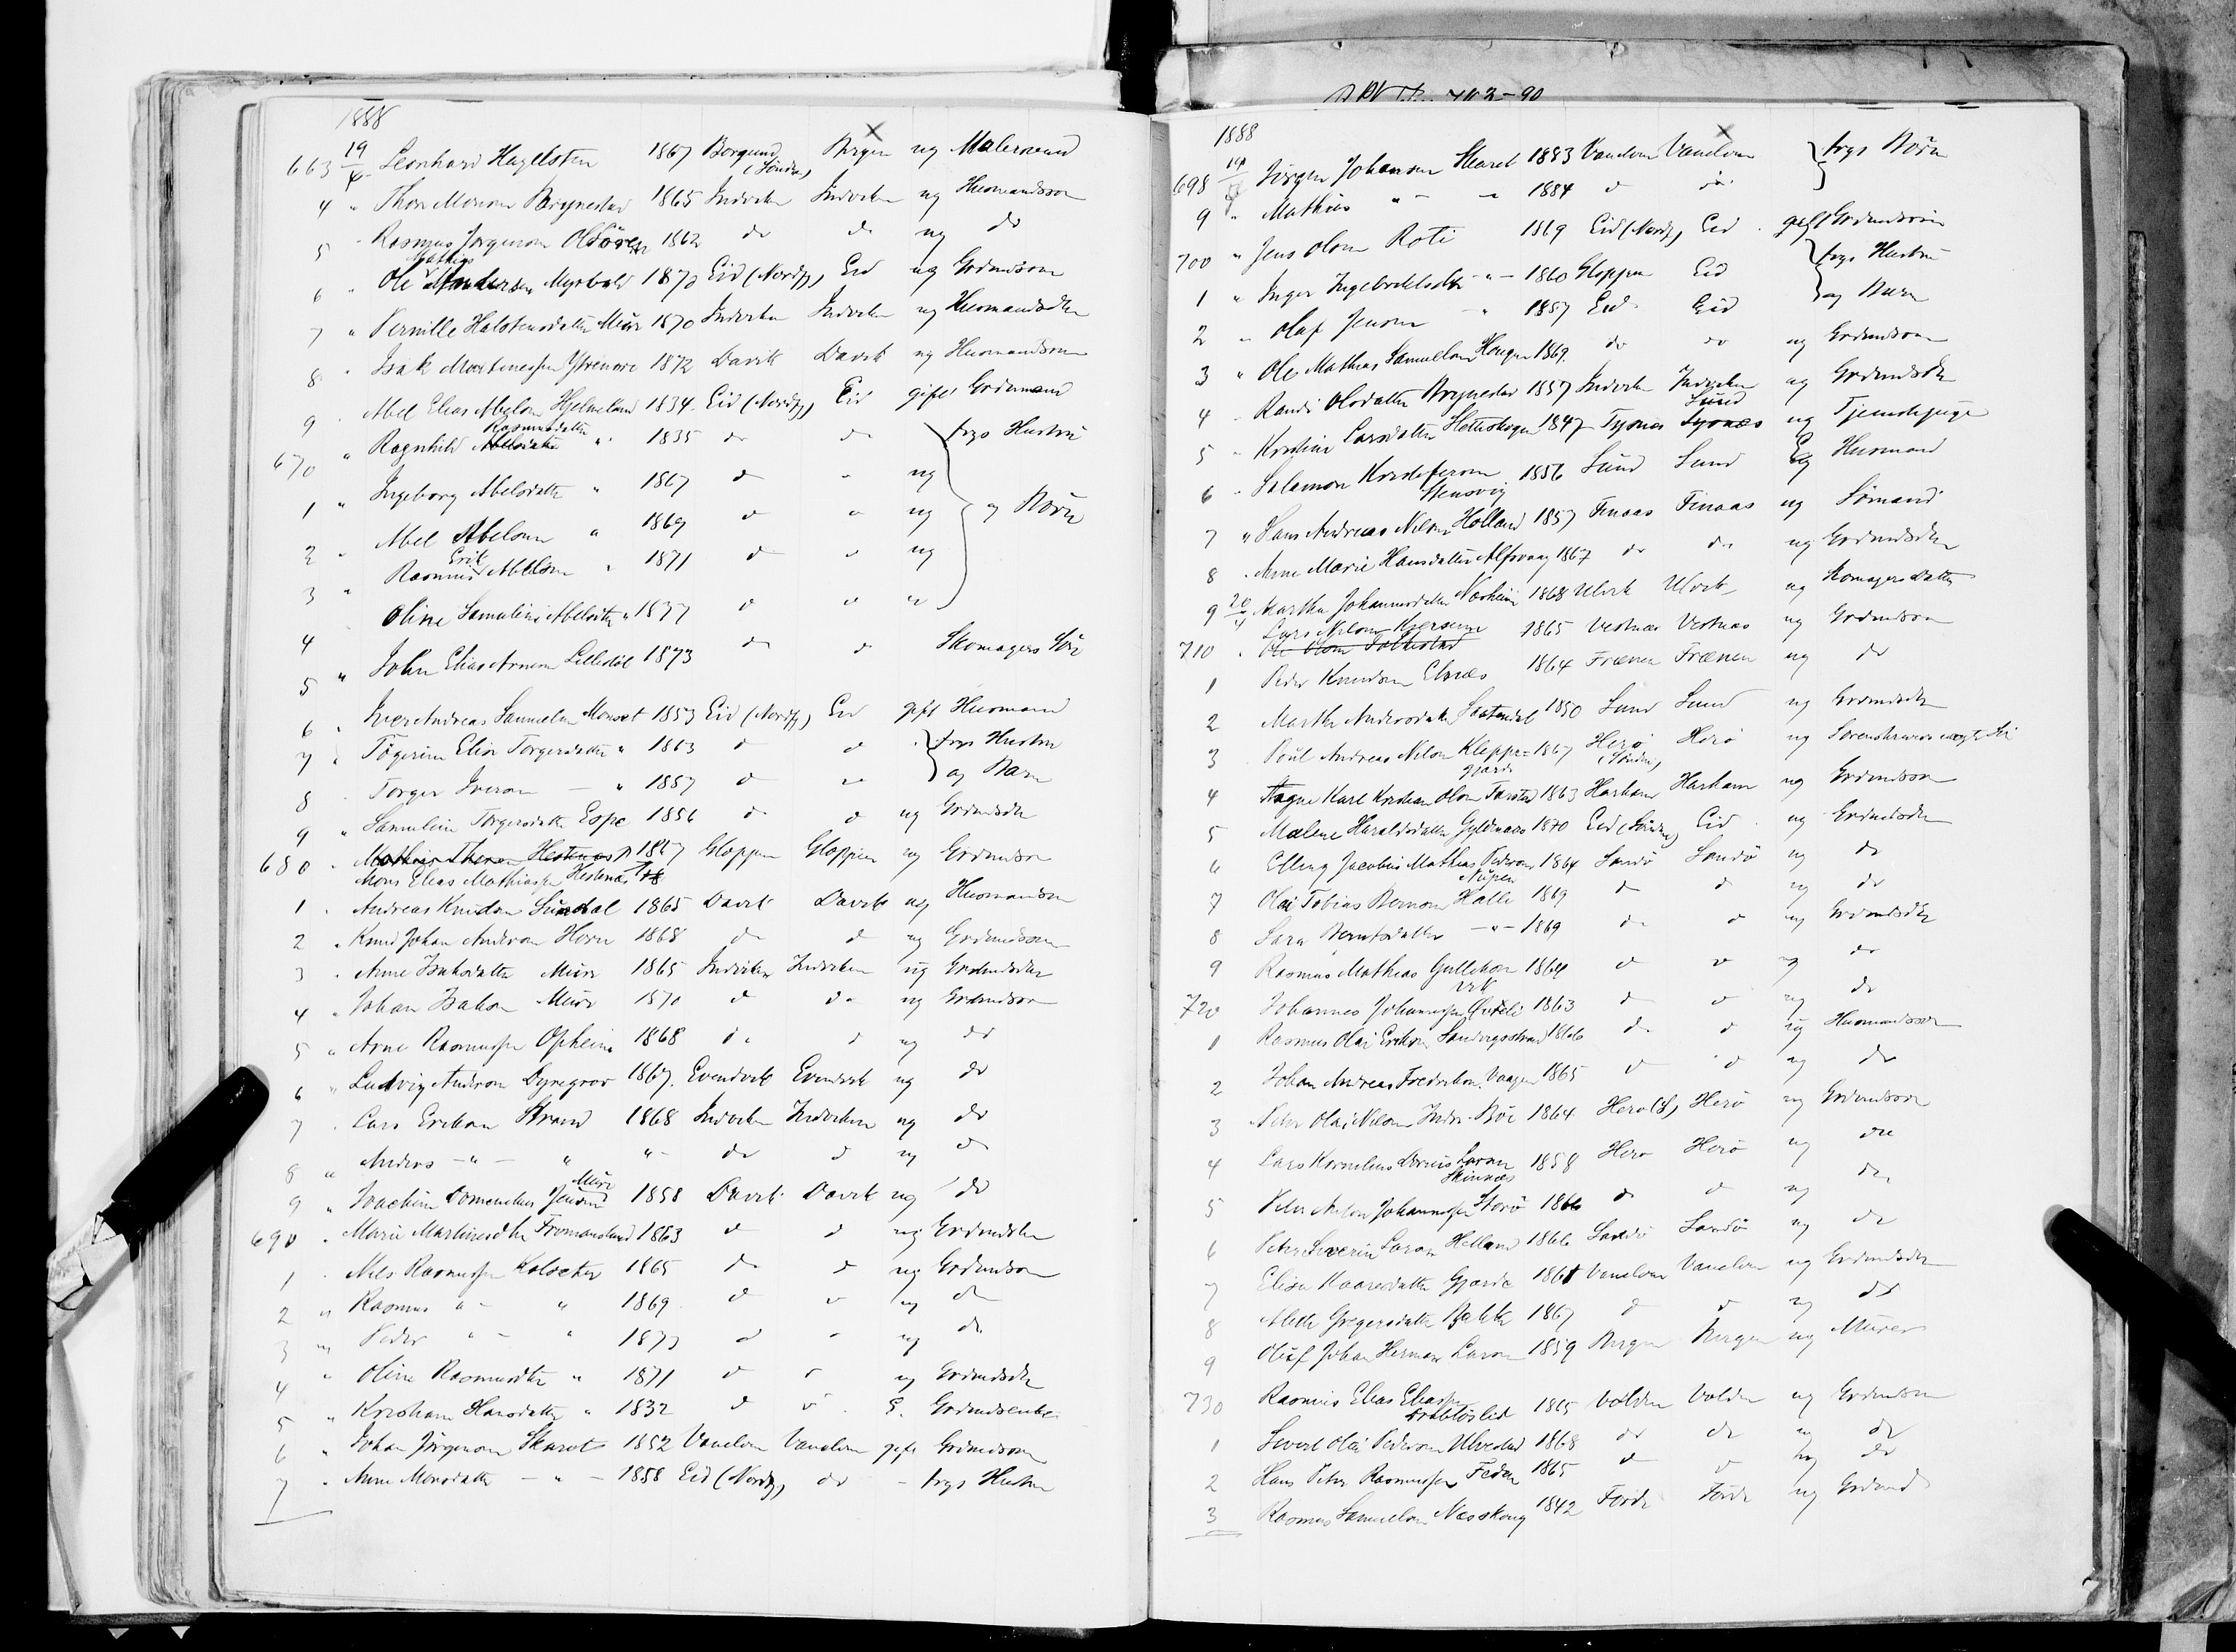 1888
663 19/4 Leonhard Hagelsten 1867 Borgund (Söndm) Bergen ug Malersvend
4 " Thor Monsen Brynestad 1865 Indviken Indviken ug Husmandssøn
5 " Rasmus Jørgensen Oldören 1862 do do ug do
6 " Ole Mathias Andersen Myrbold 1870 Eid (Nordfj) Eid ug Grdmdssøn
7 " Pernille Halstensdatter Muri 1870 Indviken Indviken ug Husmandsdtr
8 " Isak Mortinessen Ytrenore 1872 Davik Davik ug Husmandssøn
9 " Abel Elias Abelsen Hjelmeland 1834 Eid (Nordfj) Eid gift Grdmand
670 " Ragnhild Rasmusdatter " 1835 do do frgs Hustru
1 " Ingeborg Abelsdatter " 1867 d " ug
2 " Abel Abelsen " 1869 d " ug og Börn
3 " Rasmus Erik Abelsen " 1871 d " ug
4 Oline Samuline Abelsdtr " 1877 d d "
5 " John Elias Arnesen Lillestöl 1873 do d Skomagers Sön
6 " Iver Andreas Samuelsen Monset 1853 Eid (Nordfj) Eid gift Husmand
7 " Tögerine Elise Torgersdatter " 1863 d d frgs Hustru
8 " Torger Iversen — " 1887 d " og Barn
9 " Samuline Torgersdatter Espe 1856 do d ug Grdmdsdtr
680 " Mathias Hestenæs 1867 Gloppen Gloppen ug Grdmdssøn
Mons Elias Mathiassen Hestenæs
1 " Andreas Knudsen Sundal 1865 Davik Davik ug Husmandssøn
2 " Knud Johan Andersen Horn 1868 do d ug Grdmdssøn
3 " Anne Isaksdatter Muri 1865 Indviken Indviken ug Grdmdsdtr
4 " Johan Isaksen Muri 1870 d do ug Grdmdssøn
5 " Arne Rasmussen Opheim 1868 d d ug do
6 " Ludvig Andersen Dyregrov 1867 Evendvik Evendvik ug do
7 " Lars Eriksen Strand 1868 Indviken Indviken ug do
8 " Anders — " — " " do d ug d
9 " Joachim Domenikus Jensen Muri 1858 Davik Davik ug do
690 " Marie Martinesdtr 1863 d d ug Grdmdsdtr
1 " Nils Rasmussen Kolseter 1865 do d ug Grdmdssøn
2 " Rasmus " - " 1869 d d ug do
3 " Peder " - " 1877 d " ug do
4 " Oline Rasmusdtr " 1871 d d ug Grdmdsdtr
5 " Kristiane Hansdatter " 1832 d d E. Grdmdsenke
6 " Johan Jörgensen Skaret 1852 Vanelven Vanelven gift Grdmdssøn
7 " Anne Monsdatter — " — 1858 Eid (Nordfj) do - frgs Hustru
1888
698 19/4 Jörgen Johansen Skaret 1883 Vanelven Vanelven frgs Börn
9 " Mathias " - " 1884 d do
700 " Jens Olsen Roti 1869 Eid (Nordfj) Eid gift Grdmdssøn
1 " Inger Ingebretsdtr - " - 1860 Gloppen Eid frgs Hustru
2 " Olaf Jensen " 1887 Eid Eid og Barn
3 " Ole Mathias Samuelsen Haugen 1869 do do ug Grdmdssøn
4 " Randi Olsdatter Brynestad 1857 Indviken Indviken ug Grdmdsdtr
5 " Kristine Larsdatter 1847 Tysnæs Sund ug Tjenestepige
6 " Salamon Kristofersen Stensvig 1856 Sund Sund Eg Husmand
7 " Hans Andreas Nilsen Holland 1857 Finaas Finaas ug Sömand
8 " Anne Marie Hansdatter Alfsvaag 1867 do do ug Grdmdsdtr
9 20/4 Martha Johannesdatter Næsheim 1868 Ulvik Ulvik ug Skomagers datter
710 " Lars Nilsen Kjersem 1865 Vestnæs Vestnæs ug Grdmdssøn
1 Peder Knudsen Elnæs 1864 Frænen Frænen ug do
2 Marthe Andersdatter 1850 Sund Sund ug Grdmdsdtr
3 Poul Andreas Nilsen Kleppe 1867 Herö (Söndm) Herö ug
4 Hagne Karl Kristian Olsen 1863 Harham Harham ug Grdmdssøn
5 Malene Haraldsdatter Gyldnæs 1870 Eid (Söndm) Eid ug Grdmdsdtr
6 Elling Jacobus Mathias Pedersen Nupen 1864 Sandö Sandö ug do
7 Olai Tobias Berntsen Halle 1869 d d ug do
8 Sara Berntsdatter — " — 1869 do d ug Grdmdsdtr
9 Rasmus Mathias Gullikson 1864 d v ug do
720 Johannes Johannessen 1863 d d ug do
1 Rasmus Olai Eriksen Sandvigsstrand 1866 do d ug Husmandssøn
2 Johan Andreas Fredriksen Vaagen 1865 d d ug do
3 Peter Olai Nilsen Indre-Böe 1864 Herö (S) Herö ug Grdmdssøn
4 Lars Kornelius Larsen Skinnæs 1858 Herö Herö ug do
5 Peter Johannessen Storö 1866 d d ug do
6 Peter Severin Larsen Helland 1866 Sandö Sandö ug do
7 Elisa Kaaresdatter Gjærde 1868 Vanelven Vanelven ug Grdmdsdtr
8 Alette Gregersdatter Bakke 1867 d d ug do
9 Oluf Johan Herman Larsen 1859 Bergen Bergen ug Murer
730 Rasmus Elias Eliassen 1865 Volden Volden ug Grdmdssøn
1 Sivert Olai Pedersen Ulvestad 1868 do do ug do
2 Hans Peter Rasmussen Feden 1865 d d ug do
3 Rasmus Samuelsen Næsskoug 1842 Förde Förde ug Grdmd